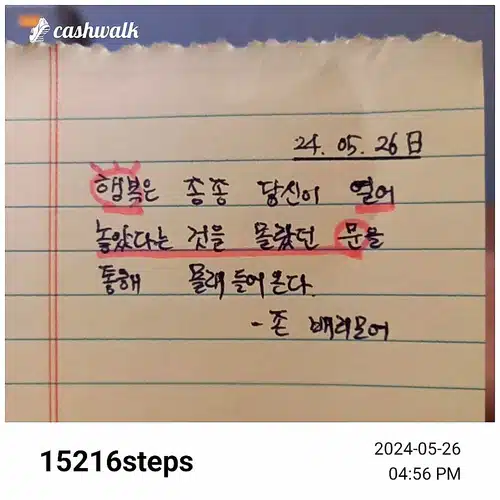 cashwalk
24. 05. 26日
행복은 종종 당신이 열어
놓았다는 것을 몰랐던 문을
통해 몰래 들어온다.
- 존 배리모어
15216steps
2024-05-26
04:56 PM